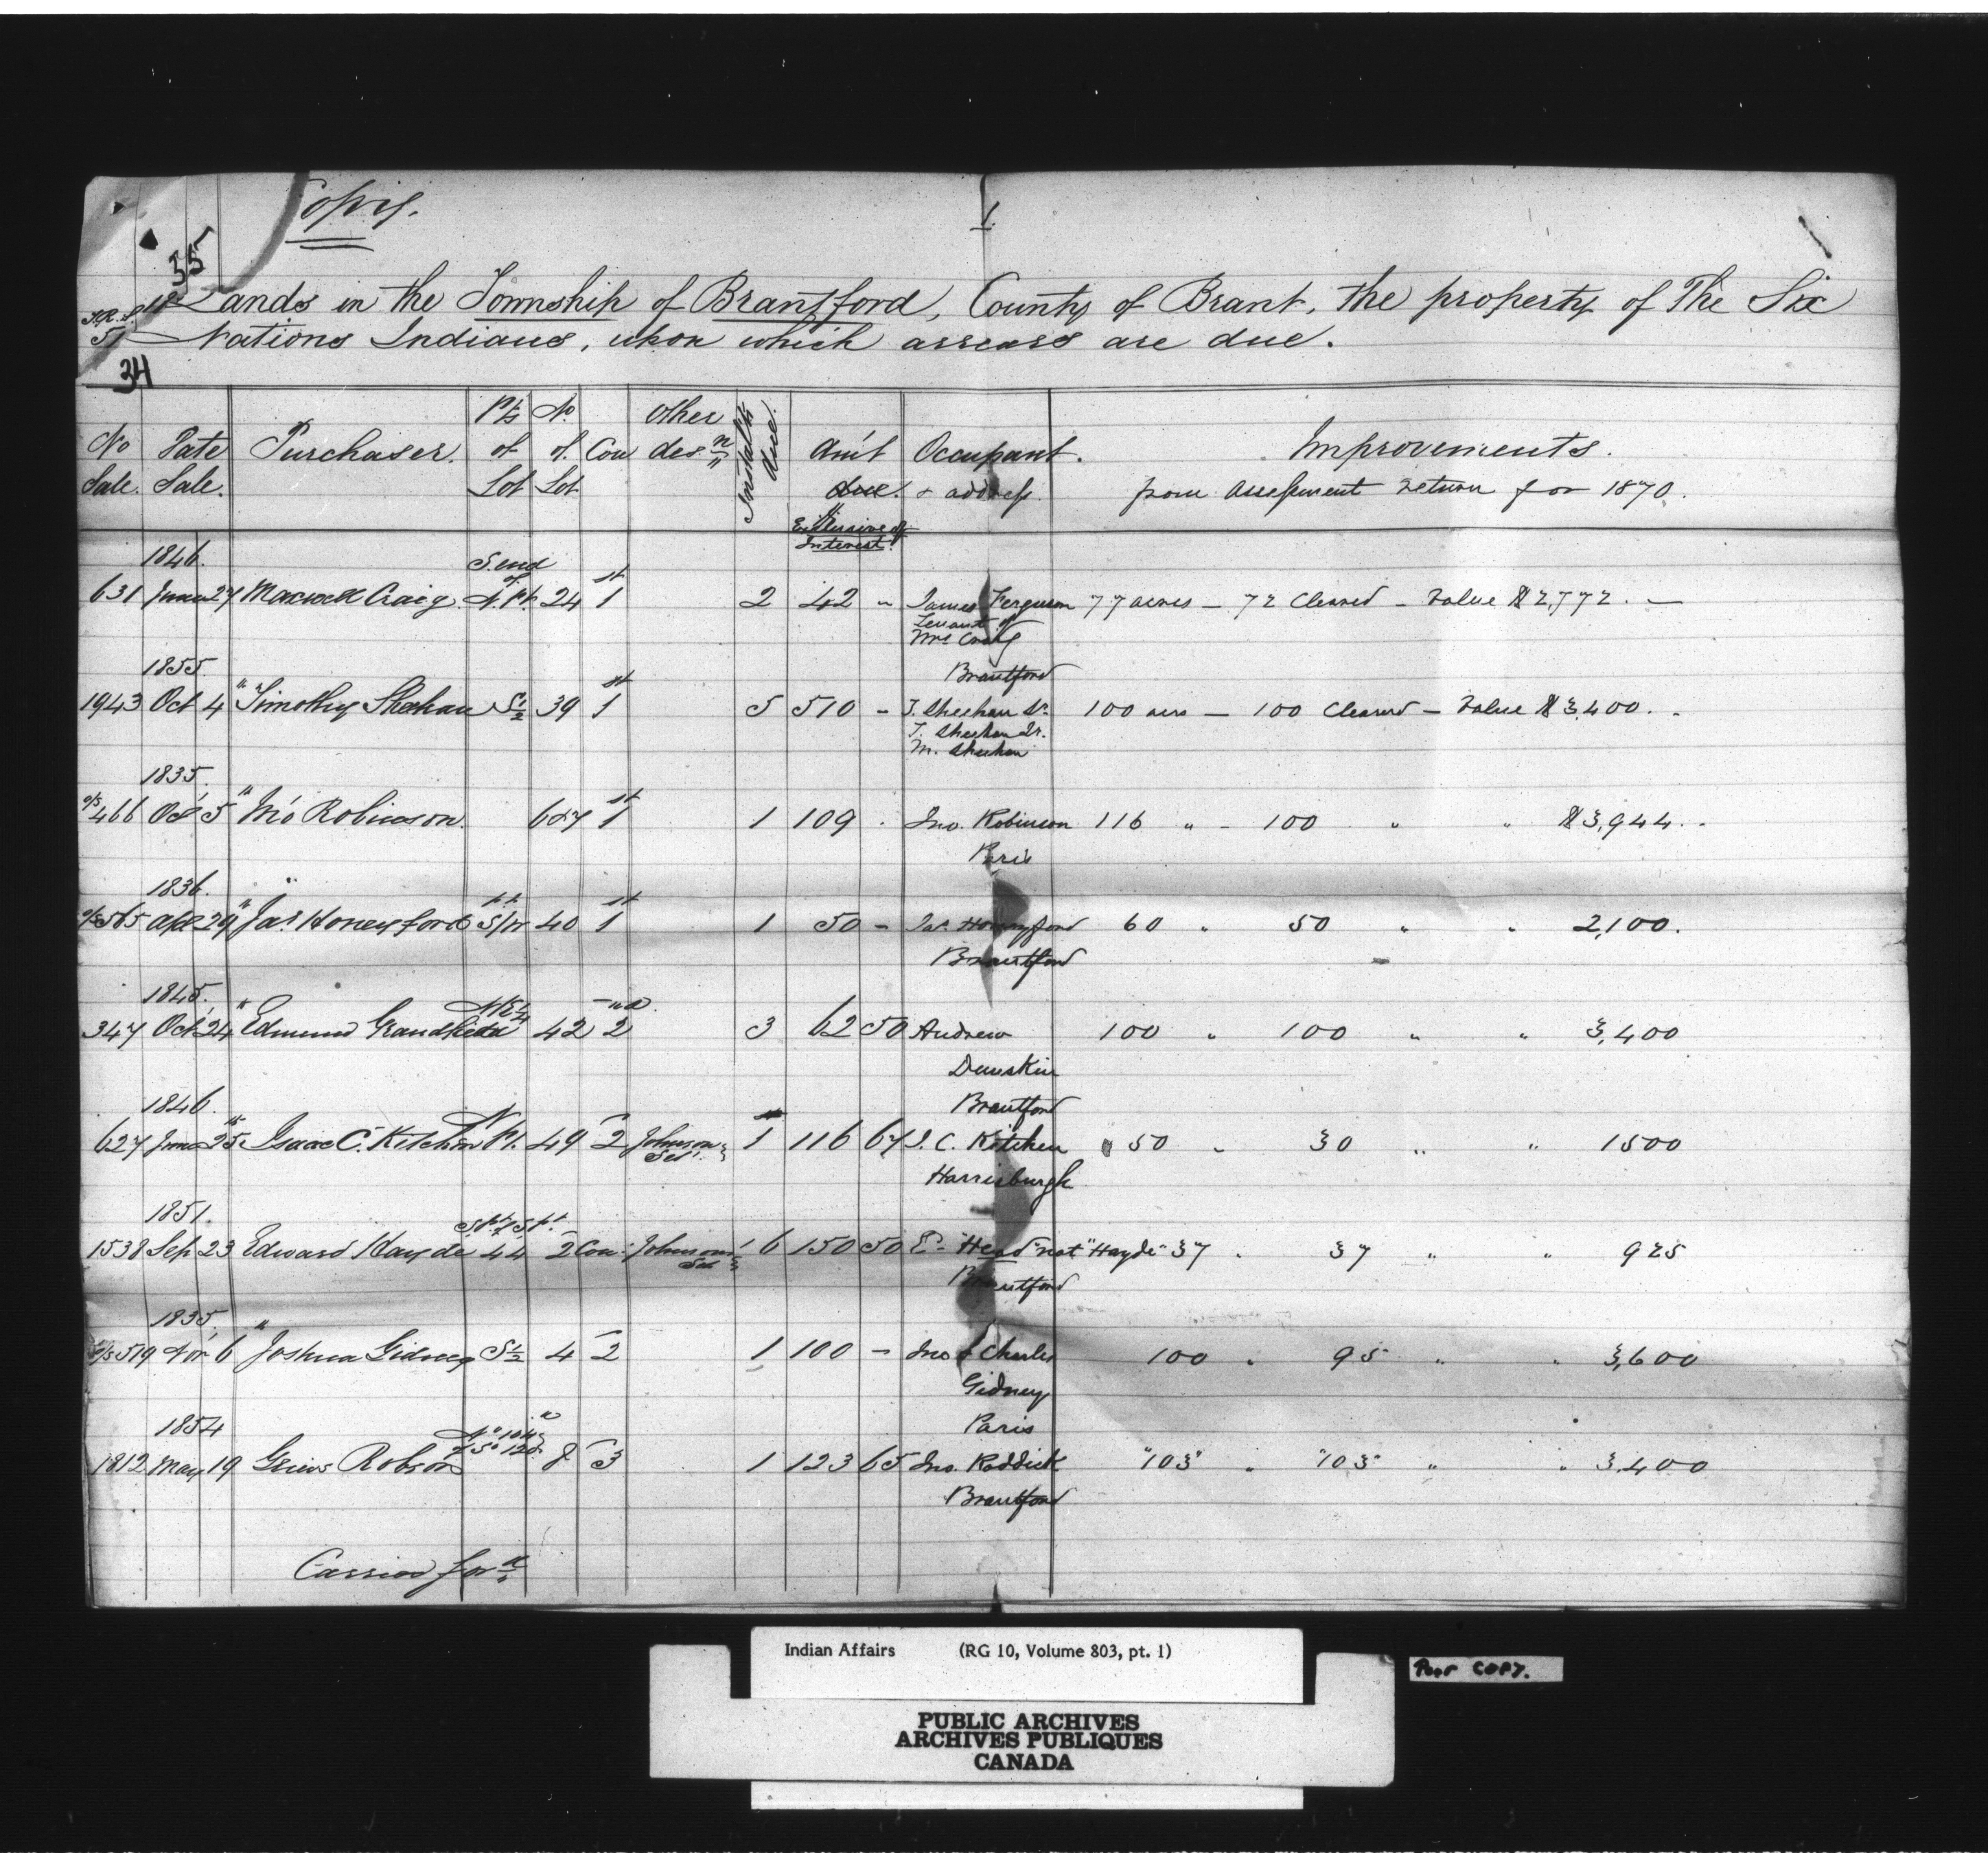 Copy.
1
55
34
Lands in the Township of Brantford, County of Brant, the property of The Six
Nations Indians, upon which arrears are due.
No Sale. Date Sale. Purchaser. Pt of Lot No. of Lot Con other desn Instalts due. Am't due. Exclusive of Interest. Occupant & address. Improvements.
from Assessment return for 1870.
1846. S. end of
631 June 27 Maxwell Craig N. Pt. 24 1st 2 42 - James Ferguson 77 acres - 72 Cleared - Value $2,772. -
Tenant of
Mrs Craig
1855. Brantford
1943 Oct 4 " Timothy Sheehan S½ 39 1st 5 510 - T. Sheehan Sr. 100 acres - 100 Cleared - Value $3,400. -
T. Sheehan Jr.
M. Sheehan
1835.
o/s 466 Oct 5 " Jno Robinson. 6 & 7 1st 1 109 - Jno. Robinson 116 " - 100 " " $3,944. -
Paris
1836. pt
o/s 565 Apl 29 " Jas Honeyford 40 1st 1 50 - Jas. Honeyford 60 " 50 " " 2,100.
Brantford
1845. NE¼
347 Oct 24 " Edmund 42 2nd 3 62 50 Andrew 100 " 100 " " 3,400
Dunskin
1846. N Brantford
627 June 25 " Isaac C. Kitchen Pt. 49 2 Johnson Set. 1 116 67 I. C. Kitchen 50 " 30 " " 1500
Harrisburgh
1851.
1538 Sep 23 Edward Hayde 44 2 Con. Johnson Set 6 150 50 E. "Head" not "Hayde" 37 " 37 " " 925
Brantford
1835.
o/s 519 Nov 6 " Joshua Gidney S½ 4 2 1 100 - Jno & Charles 100 " 95 " " 3,600
Gidney
1854 Paris
1812 May 19 Robson 8 3 1 123 65 Jno. Roddick "103" " "103" " " 3,400
Brantford
Carried ford
Indian Affairs (RG 10, Volume 803, pt. 1)
Poor COPY.
PUBLIC ARCHIVES
ARCHIVES PUBLIQUES
CANADA